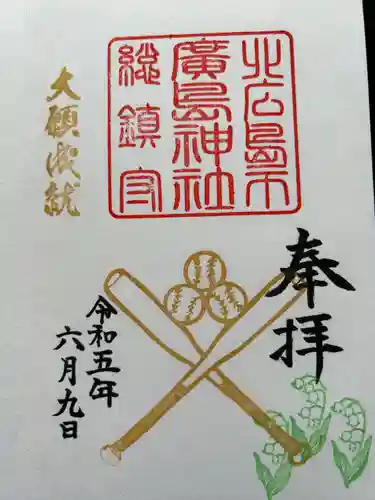 北広島市
廣島神社
総鎮守
大願成就
奉拝
令和五年
六月九日